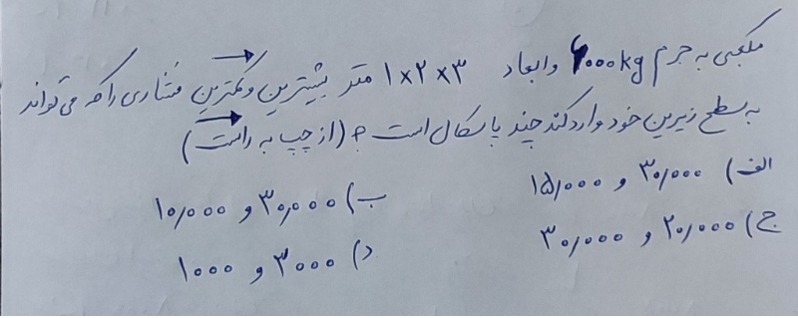 مکعبی به جرم ۶۰۰۰kg وابعاد ۱×۲×۳ متر بیشترین وکمترین فشاری را که می‌تواند
به سطح زیرین خود وارد کند چند پاسکال است؟ (از چپ به راست)
الف) ۳۰٫۰۰۰ و ۱۵٫۰۰۰
ب) ۳۰٫۰۰۰ و ۱۰٫۰۰۰
ج) ۲۰٫۰۰۰ و ۳۰٫۰۰۰
د) ۳۰۰۰ و ۱۰۰۰